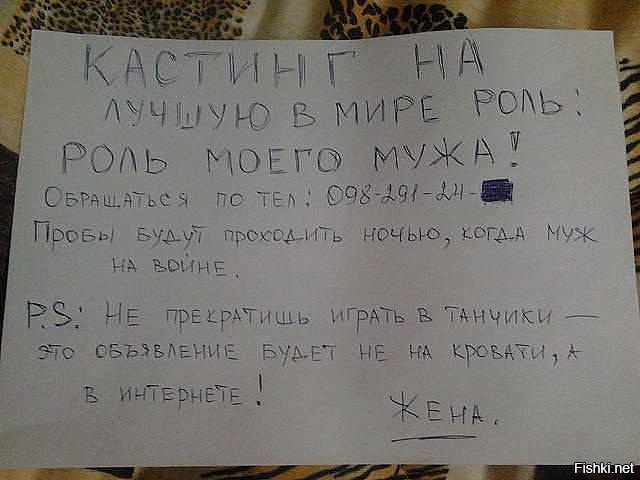 КАСТИНГ НА
ЛУЧШУЮ В МИРЕ РОЛЬ:
РОЛЬ МОЕГО МУЖА!
ОБРАЩАТЬСЯ ПО ТЕЛ: 098-291-24-
ПРОБЫ БУДУТ ПРОХОДИТЬ НОЧЬЮ, КОГДА МУЖ
НА ВОЙНЕ.
P.S: НЕ ПРЕКРАТИШЬ ИГРАТЬ В ТАНЧИКИ —
ЭТО ОБЪЯВЛЕНИЕ БУДЕТ НЕ НА КРОВАТИ, А
В ИНТЕРНЕТЕ!
ЖЕНА.
Fishki.net